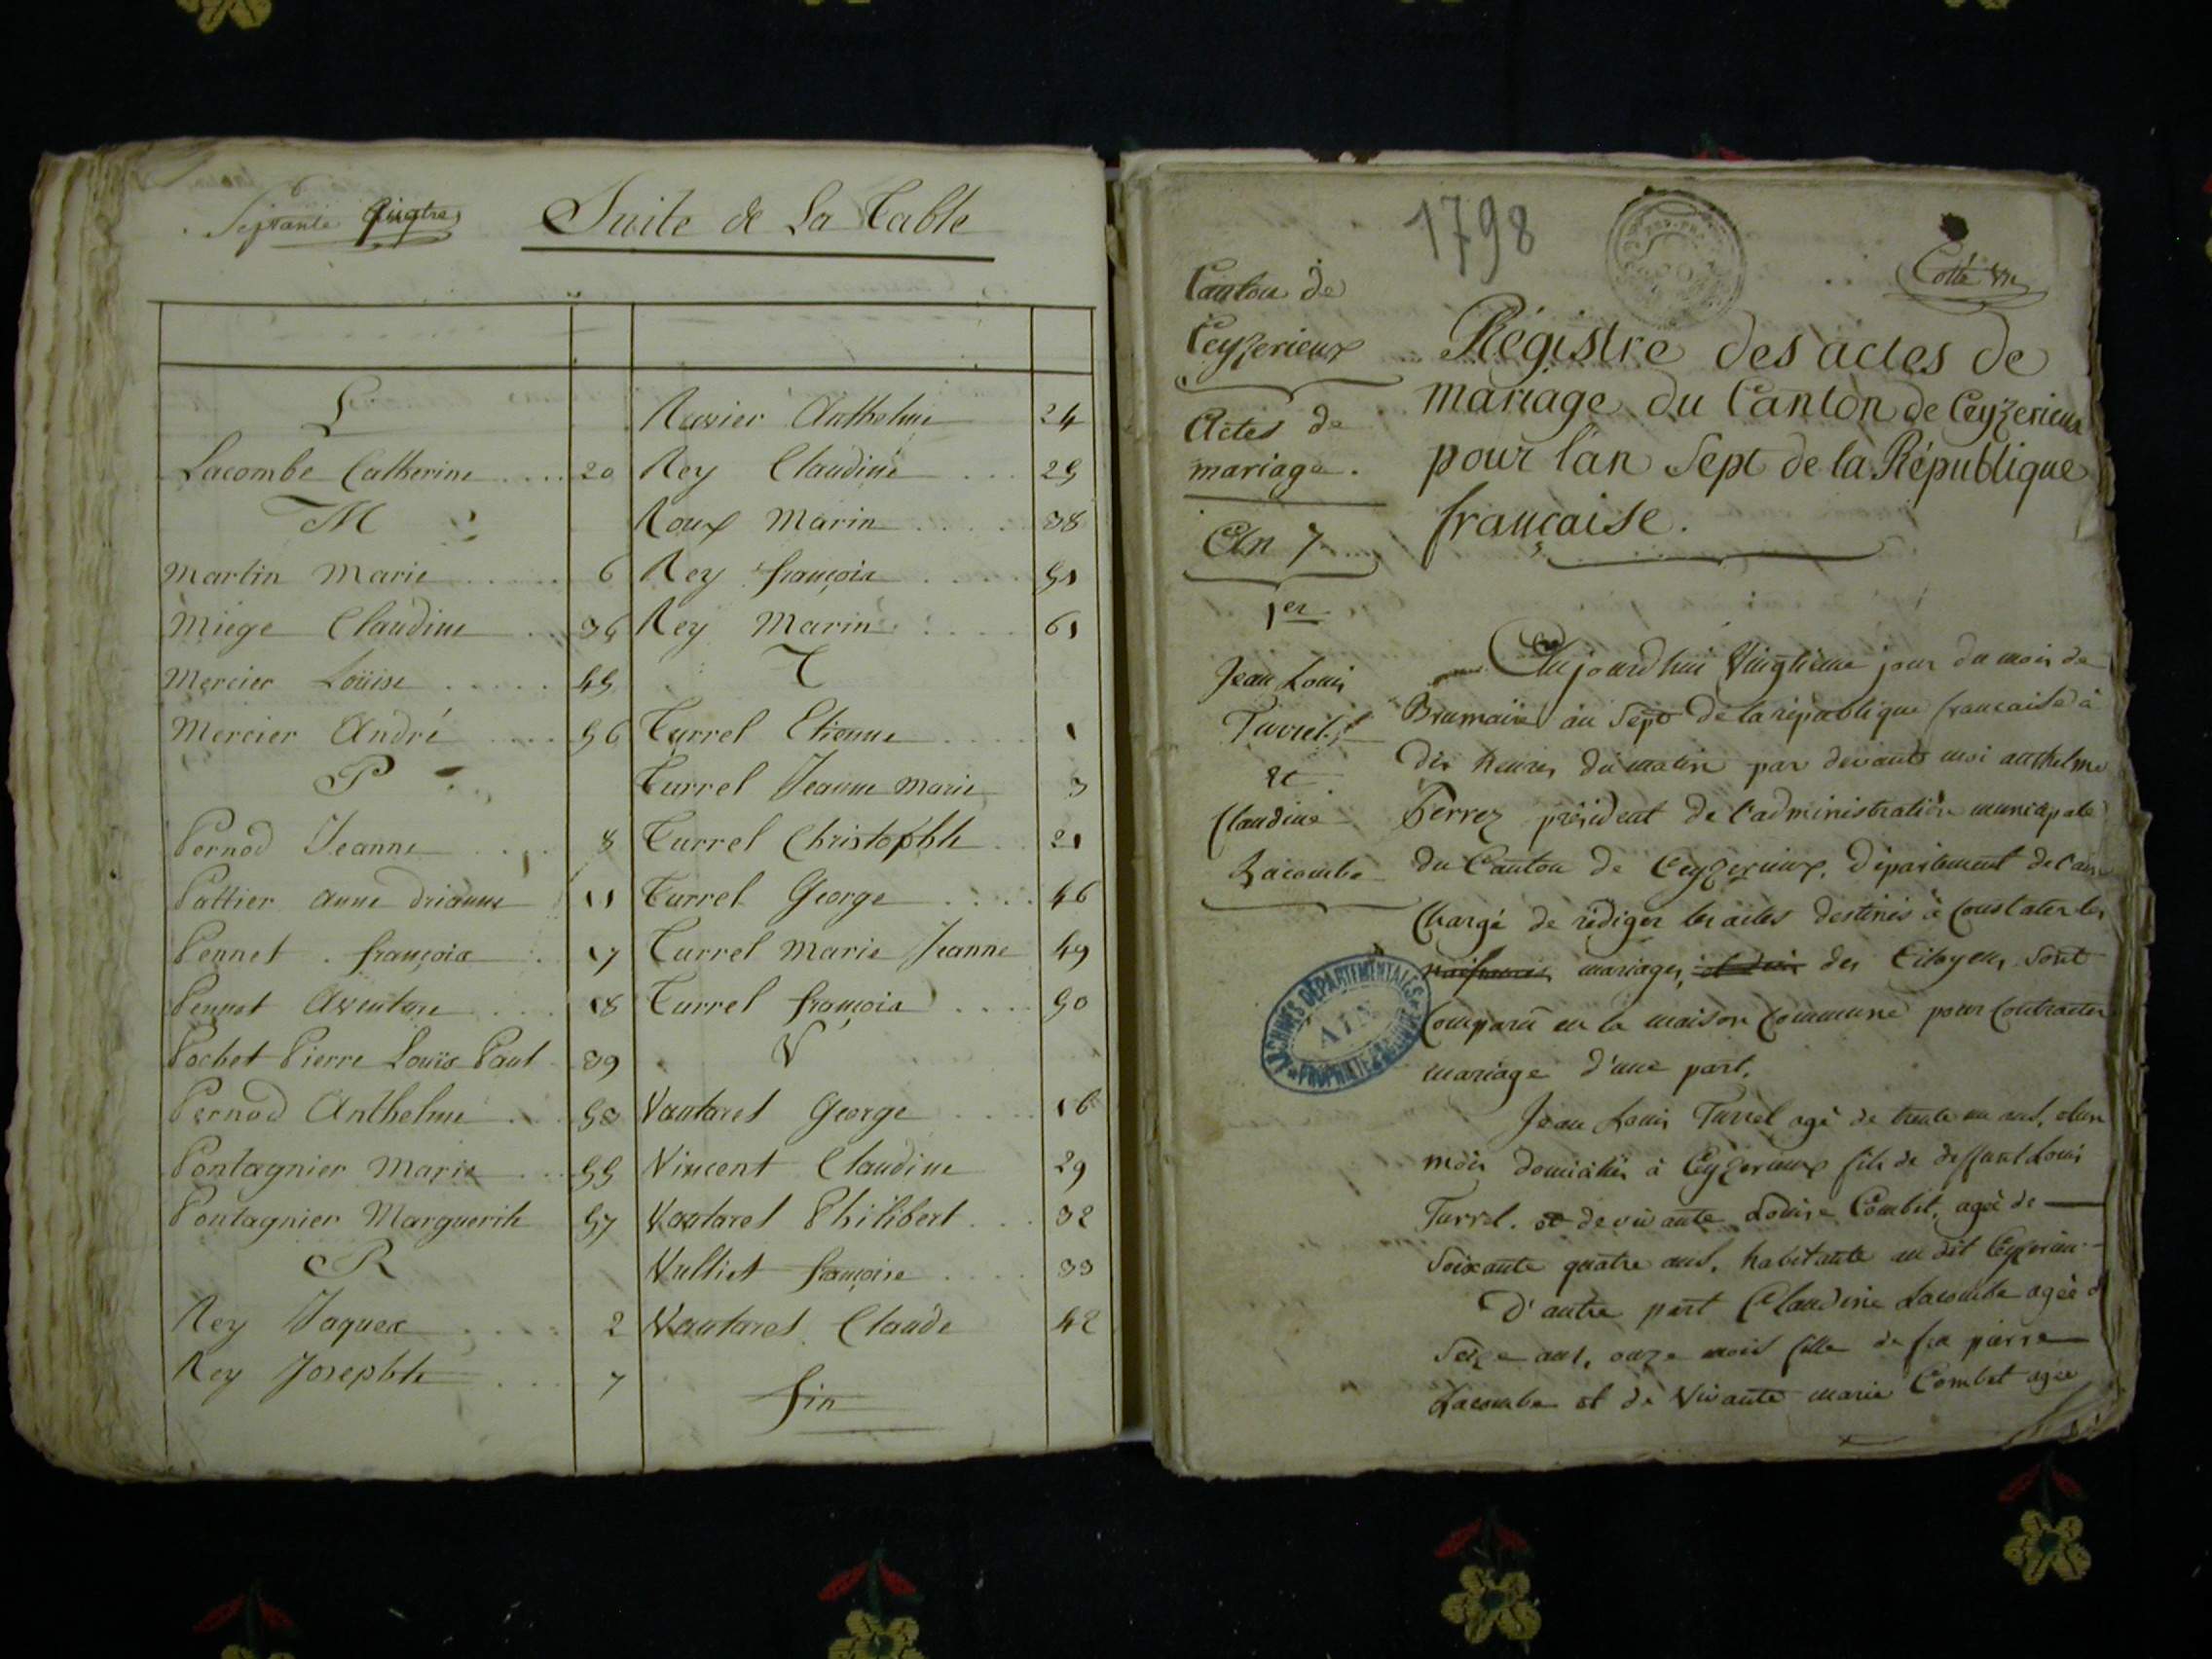 Septante quatre
Suite de La Table
L
Lacombe Catherine .... 20
M
Martin Marie ..... 6
Miege Claudine .. 36
Mercier Louise ..... 45
Mercier André .... 56
P
Pernod Jeanne .... 8
Pattier anne drianne 11
Pennet . françois . 17
Pennet Aventure ... 18
Pochet Pierre Louis Paul . 39
Pernod Anthelme ... 53
Pontagnier Marie ... 55
Pontagnier Marguerite 57
R
Rey Jaques .... 2
Rey Josephte ... 7
Ravier Anthelme 24
Rey Claudine ... 25
Roux Marin ..... 38
Rey françois .... 51
Rey Marin ..... 61
T
Turrel Etienne .... 1
Turrel Jeanne Marie 3
Turrel Christophle . 21
Turrel George .... 46
Turrel Marie Jeanne 49
Turrel françois .... 50
V
Vautaret George .... 16
Vincent Claudine 29
Vautaret Philibert ... 32
Vulliet françoise .... 33
Vautaret Claude 42
fin
1798
Cotté un
Canton de
Ceyzerieux
Actes de
mariage.
An 7
1er
Jean Louis
Turrel
et
Claudine
Lacombe
Régistre des actes de
mariage du Canton de Ceyzerieux
pour l'an Sept de la République
française.
Aujourd'hui Vingtième jour du mois de
Brumaire an Sept de la république française à
dix heures du matin par devant moi anthelme
Ferrez président de l'administration municipale
du Canton de Ceyzerieux, département de l'ain
Chargé de rédiger les actes destinés à Constater les
naissances mariages, et décès des Citoyens, sont
Comparu en la maison Commune pour Contracter
mariage d'une part,
Jean Louis Turrel agé de trente un ans, d'un
mois domicilié à Ceyzerieux fils de deffunt Louis
Turrel. et de vivante Louise Combet, agée de
Soixante quatre ans, habitante au dit Ceyzerieu
D'autre part Claudine Lacombe agée d
Seize ans, onze mois fille de feu pierre
Lacombe et de Vivante marie Combet agée
ARCHIVES DÉPARTEMENTALES
AIN
PROPRIÉTÉ PUBLIQUE